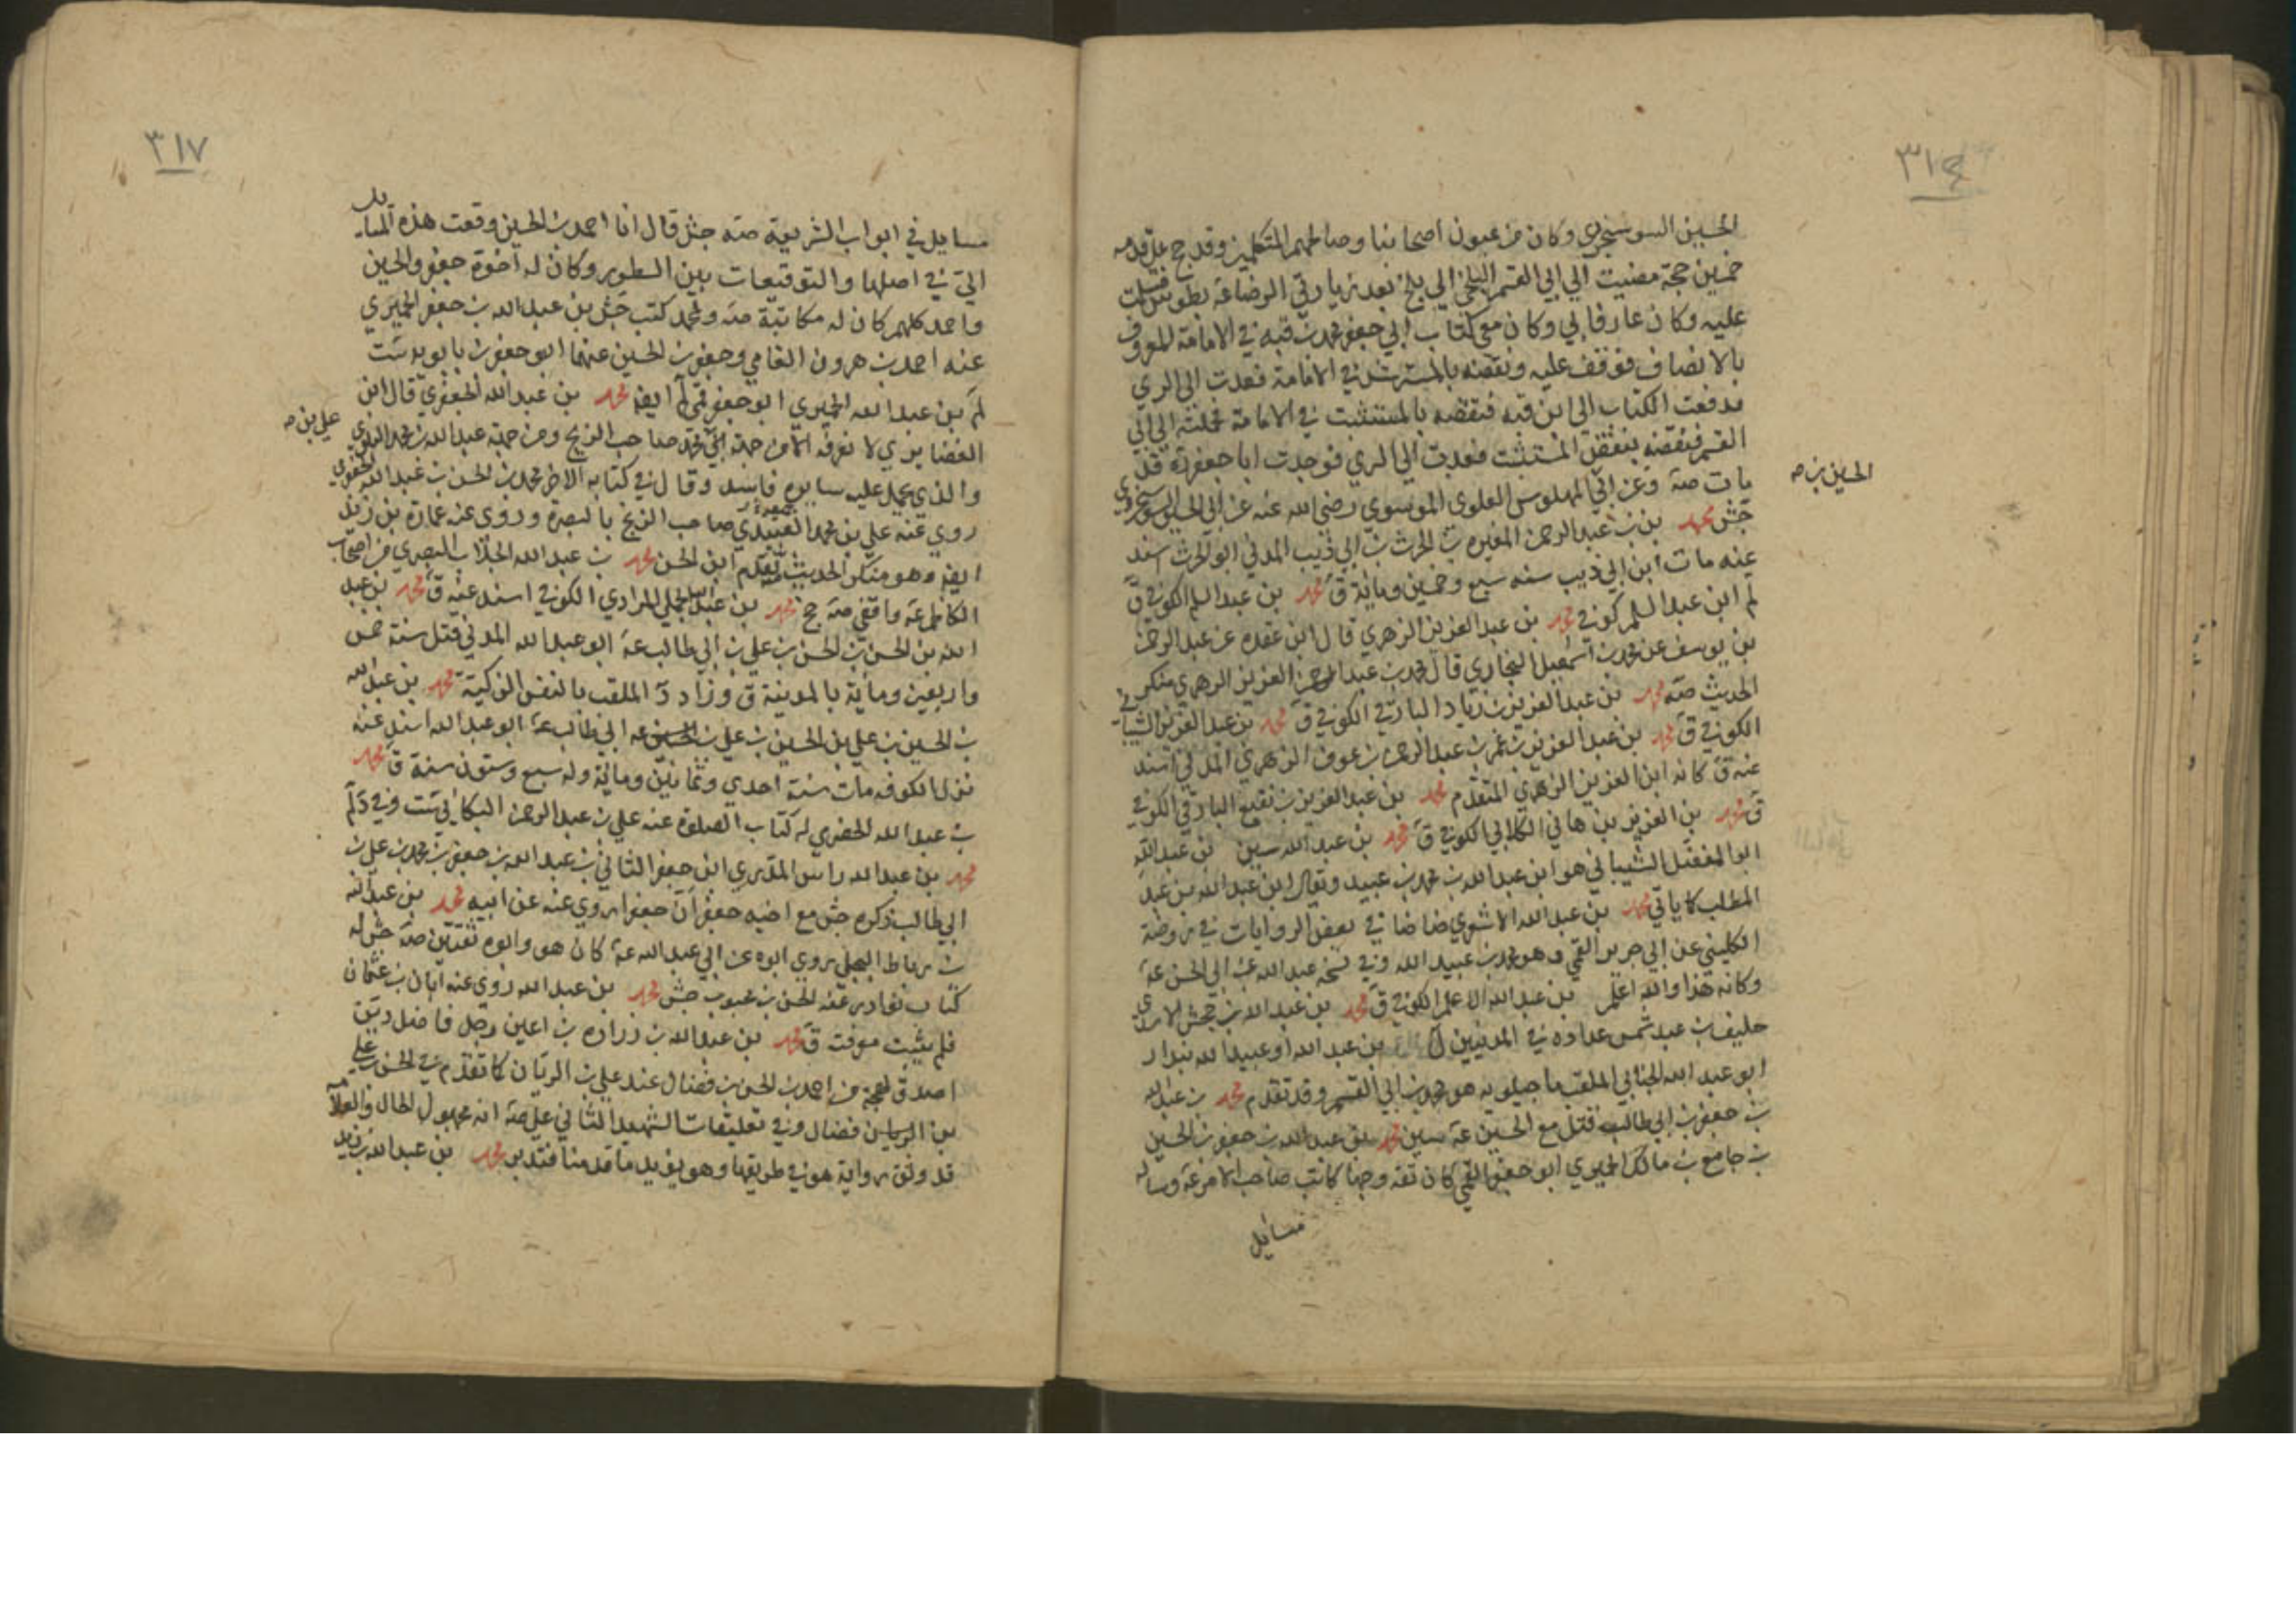 الحسين السوسنجردي وكان من عيون اصحابنا وصالحيهم المتكلمين وقد حج على قدمه
خمسين حجة مضيت الى ابي القسم البلخي الى بلخ بعد زيارتي الرضا عه بطوس فسلمت
عليه وكان عارفا بي وكان معي كتاب ابي جعفر محمد بن قبه في الامامة المعروف
بالانصاف فوقف عليه ونقضه بالمسترشد في الامامة فعدت الى الري
فدفعت الكتاب الى ابن قبه فنقضه بالمستثبت في الامامة فحملته الى ابي
القسم فنقضه بنقض المستثبت فعدت الى الري فوجدت ابا جعفر ره قد
مات صه وعن ابي المهلوس العلوي الموسوي رضي الله عنه عن ابي الحسين السوسنجردي
الحسين بن صه
جش محمد بن بن عبد الرحمن المغيره بن الحرث بن ابي ذيب المدني ابو الحرث اسند
عنه مات ابن ابي ذيب سنه سبع وخمسين ومائة ق محمد بن عبد السلم الكوفي ق
لم ابن عبد السلم كوفي محمد بن عبد العزيز الزهري قال ابن عقده عن عبد الرحمن
بن يوسف عن محمد بن اسمعيل البخاري قال محمد بن عبد العزيز الزهري منكر
الحديث صه محمد بن عبد العزيز بن زياد البارقي الكوفي ق محمد بن عبد العزيز الشيباني
الكوفي ق محمد بن عبد العزيز بن عمر بن عبد الرحمن بن عوف الزهري المدني اسند
عنه ق كانه ابن العزيز الزهري المتقدم محمد بن عبد العزيز بن نفيع البارقي الكوفي
ق محمد بن العزيز بن هاني الكلابي الكوفي ق محمد بن عبد الله سين بن عبد الله
ابو المفضل الشيباني هو ابن عبد الله بن محمد بن عبيد ويقال ابن عبد الله بن عبد
المطلب كما ياتي محمد بن عبد الله الاشعري ضا ضا في بعض الروايات في روضة
الكليني عن ابي جرير القمي وهو محمد بن عبيد الله وفي نسخه عبد الله عن ابي الحسن عه
وكانه هذا والله اعلم بن عبد الله الاعلم الكوفي ق محمد بن عبد الله بن جحش الاسدي
حليف بن عبد شمس عداده في المدنيين ل بن عبد الله او عبيد الله بندار
ابو عبد الله الجنابي الملقب ماجيلويه هو محمد بن ابي القسم وقد تقدم محمد بن عبد الله
بن جعفر بن ابي طالب قتل مع الحسين عه سين محمد بن عبد الله بن جعفر بن الحسين
بن جامع بن مالك الحميري ابو جعفر القمي كان ثقه وجها كاتب صاحب الامر عه وساله
مسايل
٣١٧
مسايل في ابواب الشريعة صه جش قال انا احمد بن الحسين وقعت هذه المسايل
التي في اصلها والتوقيعات بين السطور وكان له اخوة جعفر والحسين
واحمد كلهم كان له مكاتبة صه ولمحمد كتب جش بن عبد الله بن جعفر الحميري
عنه احمد بن هرون الفامي وجعفر بن الحسين عنهما ابو جعفر بن بابويه ست
لم بن عبد الله الحميري ابو جعفر قمي لم ايضا محمد بن عبد الله الجعفري قال ابن
الغضايري لا نعرفه الا من جهة علي بن محمد صاحب الزنج ومن جهة عبد الله بن محمد البلوي
علي بن صه
والذي يحمل عليه سايره فاسد وقال في كتابه الاخر محمد بن الحسن بن عبد الله الجعفري
روى عنه علي بن محمد العبيدي صاحب الزنج بالبصرة وروى عنه عمارة بن زيد
ايضا وهو منكر الحديث تقدم ابن الحسن محمد بن عبد الله الجلاب البصري من اصحاب
الكاظم عه واقفي صه جخ محمد بن عبد الله الجملي المرادي الكوفي اسند عنه ق محمد بن عبد
الله بن الحسن بن الحسن بن علي بن ابي طالب عه ابو عبد الله المدني قتل سنة خمس
واربعين ومائة بالمدينة ق وزاد د الملقب بالنفس الزكية محمد بن عبد الله
بن الحسين بن علي بن الحسين بن علي بن ابي طالب عه ابو عبد الله اسند عنه
نزل الكوفه مات سنة احدى وثمانين ومائة وله سبع وستون سنة ق محمد
بن عبد الله الحضرمي له كتاب الصلوة عنه علي بن عبد الرحمن البكائي ست وفي د لم
محمد بن عبد الله راس المذري ابن جعفر الثاني بن عبد الله بن جعفر بن محمد بن علي بن
ابي طالب ذكره جش مع اخيه جعفر ان جعفرا روى عنه عن ابيه محمد بن عبد الله
بن رباط البجلي روى ابوه عن ابي عبد الله عه كان هو وابوه ثقتين صه جش له
كتاب نوادر عنه الحسن بن محبوب جش محمد بن عبد الله روى عنه ابان بن عثمان
فلم يثبت معرفته ق محمد بن عبد الله بن زراره بن اعين رجل فاضل دين
اصدق لهجة من احمد بن الحسن بن فضال عند علي بن الريان كما تقدم في الحسن بن علي
بن فضال وفي تعليقات الشهيد الثاني على صه انه مجهول الحال والعلامة
قد وثق رواية هو في طريقها وهو يفيد ما قدمنا فتدبر محمد بن عبد الله بن زيد